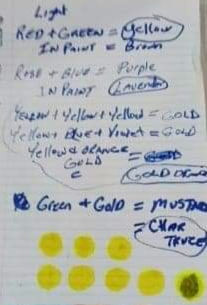 Light
RED + GREEN = Yellow
IN PAINT = Brown
ROSE + BLUE = Purple
IN PAINT Lavender
YELLOW + Yellow + Yellow = GOLD
Yellow + Blue + Violet = GOLD
Yellow & ORANGE
GOLD
GOLD
Green + Gold = MUSTARD
= CHAR
TRUCE